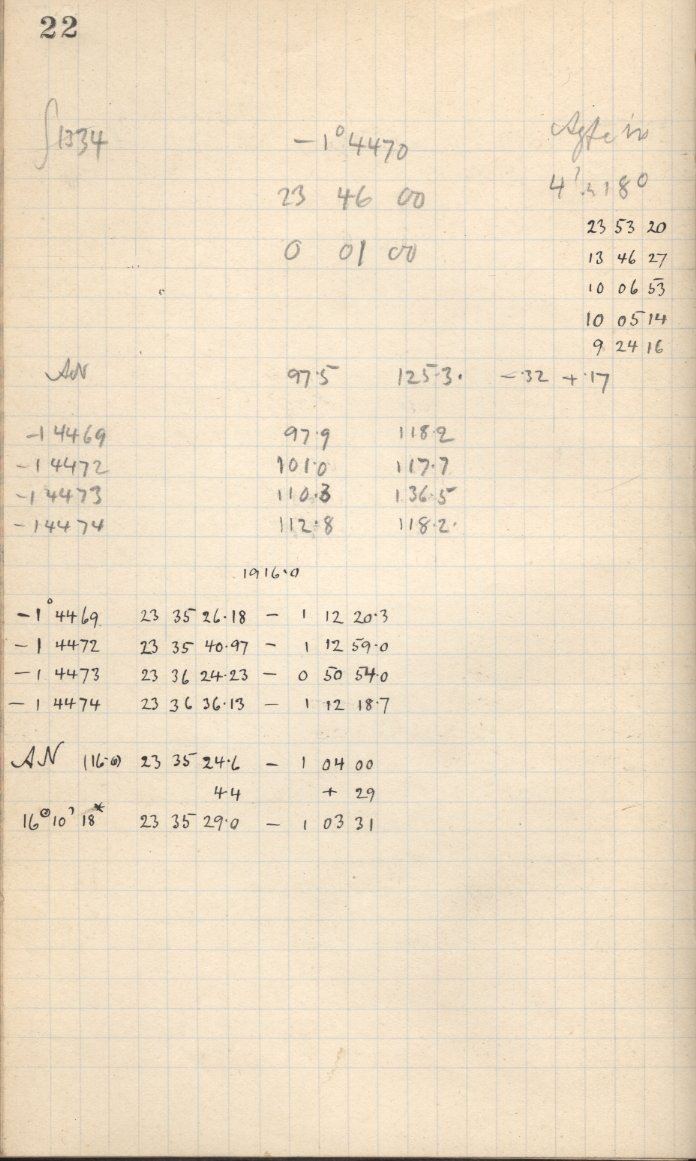 22
∫1334 −1°4470
4' 180
23 46 00
23 53 20
0 01 00
13 46 27
10 06 53
10 05 14
9 24 16
AN 97.5 125.3. −.32 +.17
−1 4469 97.9 118.2
−1 4472 101.0 117.7
−1 4473 110.3 136.5
−1 4474 112.8 118.2.
1916.0
−1°4469 23 35 26.18 − 1 12 20.3
−1 4472 23 35 40.97 − 1 12 59.0
−1 4473 23 36 24.23 − 0 50 54.0
−1 4474 23 36 36.13 − 1 12 18.7
AN (16.0) 23 35 24.6 − 1 04 00
4.4 + 29
23 35 29.0 − 1 03 31